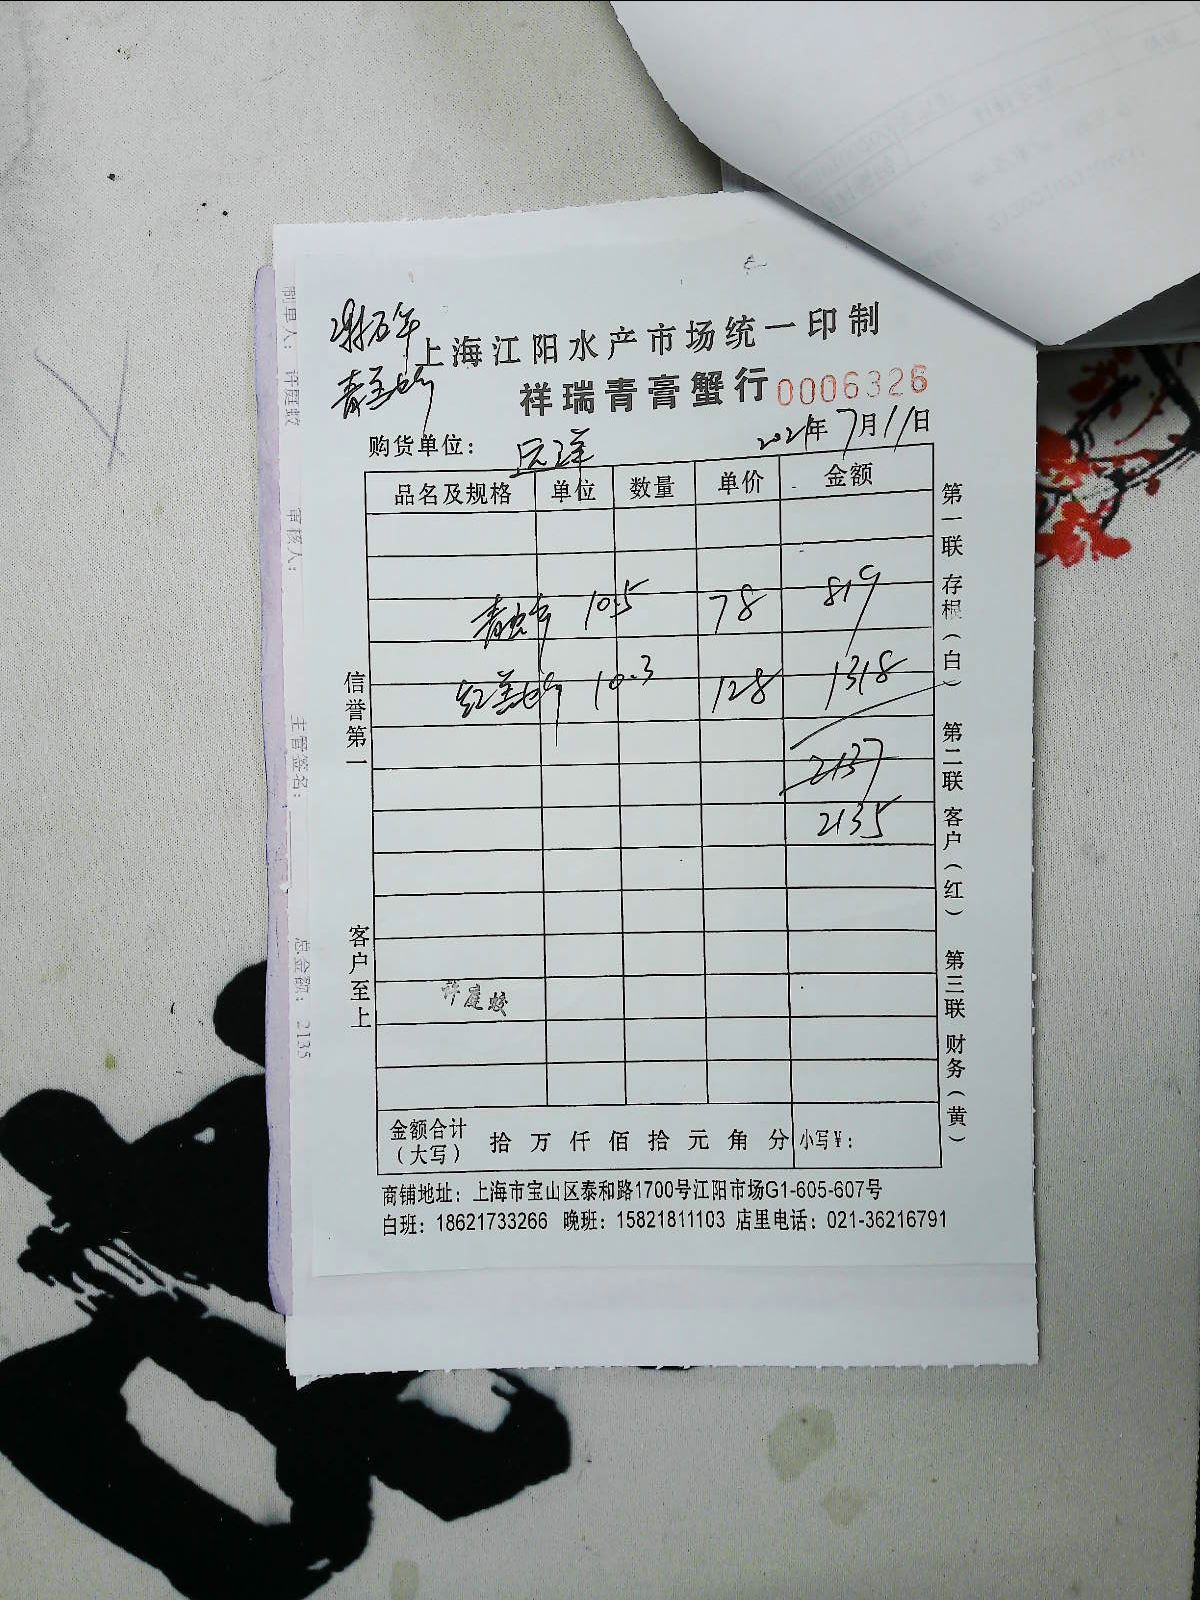 上海江阳水产市场统一印制
祥瑞青膏蟹行 0006326
购货单位: 远洋 2021年7月11日
品名及规格 单位 数量 单价 金额
10.5 78 819
10.3 128 1318
2137
2135
许庭蛟
金额合计（大写） 拾 万 仟 佰 拾 元 角 分 小写¥:
商铺地址: 上海市宝山区泰和路1700号江阳市场G1-605-607号
白班: 18621733266 晚班: 15821811103 店里电话: 021-36216791
信誉第一
客户至上
第一联 存根（白） 第二联 客户（红） 第三联 财务（黄）
制单人: 审核人: 主管签名: 总金额: 2135